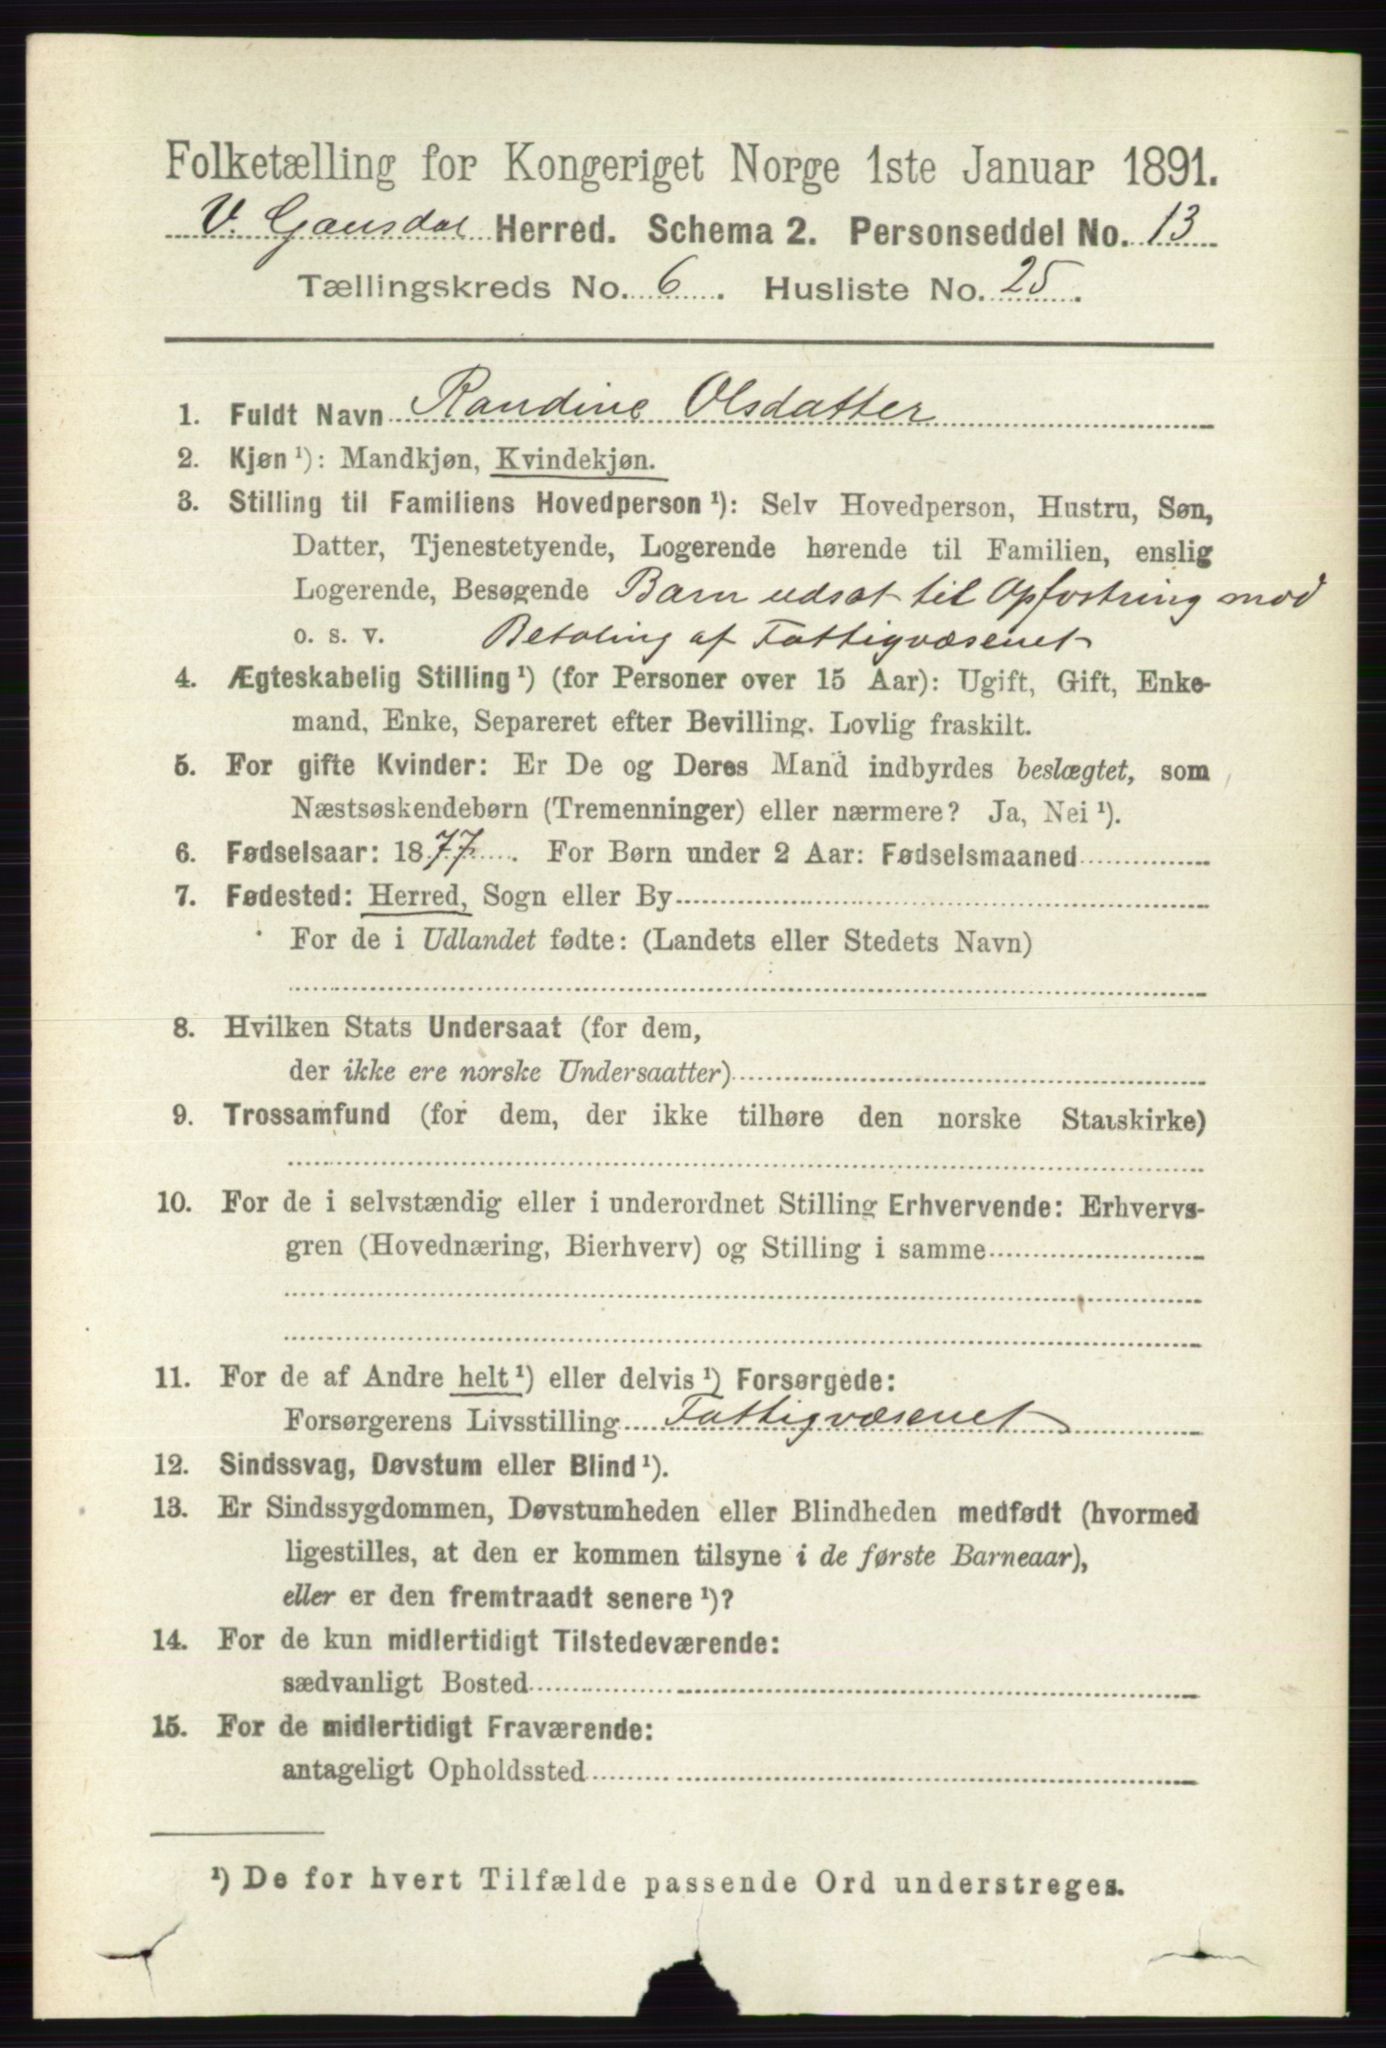 Folketælling for Kongeriget Norge 1ste Januar 1891.
V. Gausdal Herred. Schema 2. Personseddel No. 13
Tællingskreds No. 6. Husliste No. 25.
1. Fuldt Navn Randine Olsdatter
2. Kjøn ¹): Mandkjøn, Kvindekjøn.
3. Stilling til Familiens Hovedperson ¹): Selv Hovedperson, Hustru, Søn,
Datter, Tjenestetyende, Logerende hørende til Familien, enslig
Logerende, Besøgende Barn udsat til Opfostring mod
o. s. v. Betaling af Fattigvæsenet
4. Ægteskabelig Stilling ¹) (for Personer over 15 Aar): Ugift, Gift, Enke-
mand, Enke, Separeret efter Bevilling. Lovlig fraskilt.
5. For gifte Kvinder: Er De og Deres Mand indbyrdes beslægtet, som
Næstsøskendebørn (Tremenninger) eller nærmere? Ja, Nei ¹).
6. Fødselsaar: 1877. For Børn under 2 Aar: Fødselsmaaned
7. Fødested: Herred, Sogn eller By
For de i Udlandet fødte: (Landets eller Stedets Navn)
8. Hvilken Stats Undersaat (for dem,
der ikke ere norske Undersaatter)
9. Trossamfund (for dem, der ikke tilhøre den norske Statskirke)
10. For de i selvstændig eller i underordnet Stilling Erhvervende: Erhvervs-
gren (Hovednæring, Bierhverv) og Stilling i samme
11. For de af Andre helt ¹) eller delvis ¹) Forsørgede:
Forsørgerens Livsstilling Fattigvæsenet
12. Sindssvag, Døvstum eller Blind ¹).
13. Er Sindssygdommen, Døvstumheden eller Blindheden medfødt (hvormed
ligestilles, at den er kommen tilsyne i de første Barneaar),
eller er den fremtraadt senere ¹)?
14. For de kun midlertidigt Tilstedeværende:
sædvanligt Bosted
15. For de midlertidigt Fraværende:
antageligt Opholdssted
¹) De for hvert Tilfælde passende Ord understreges.